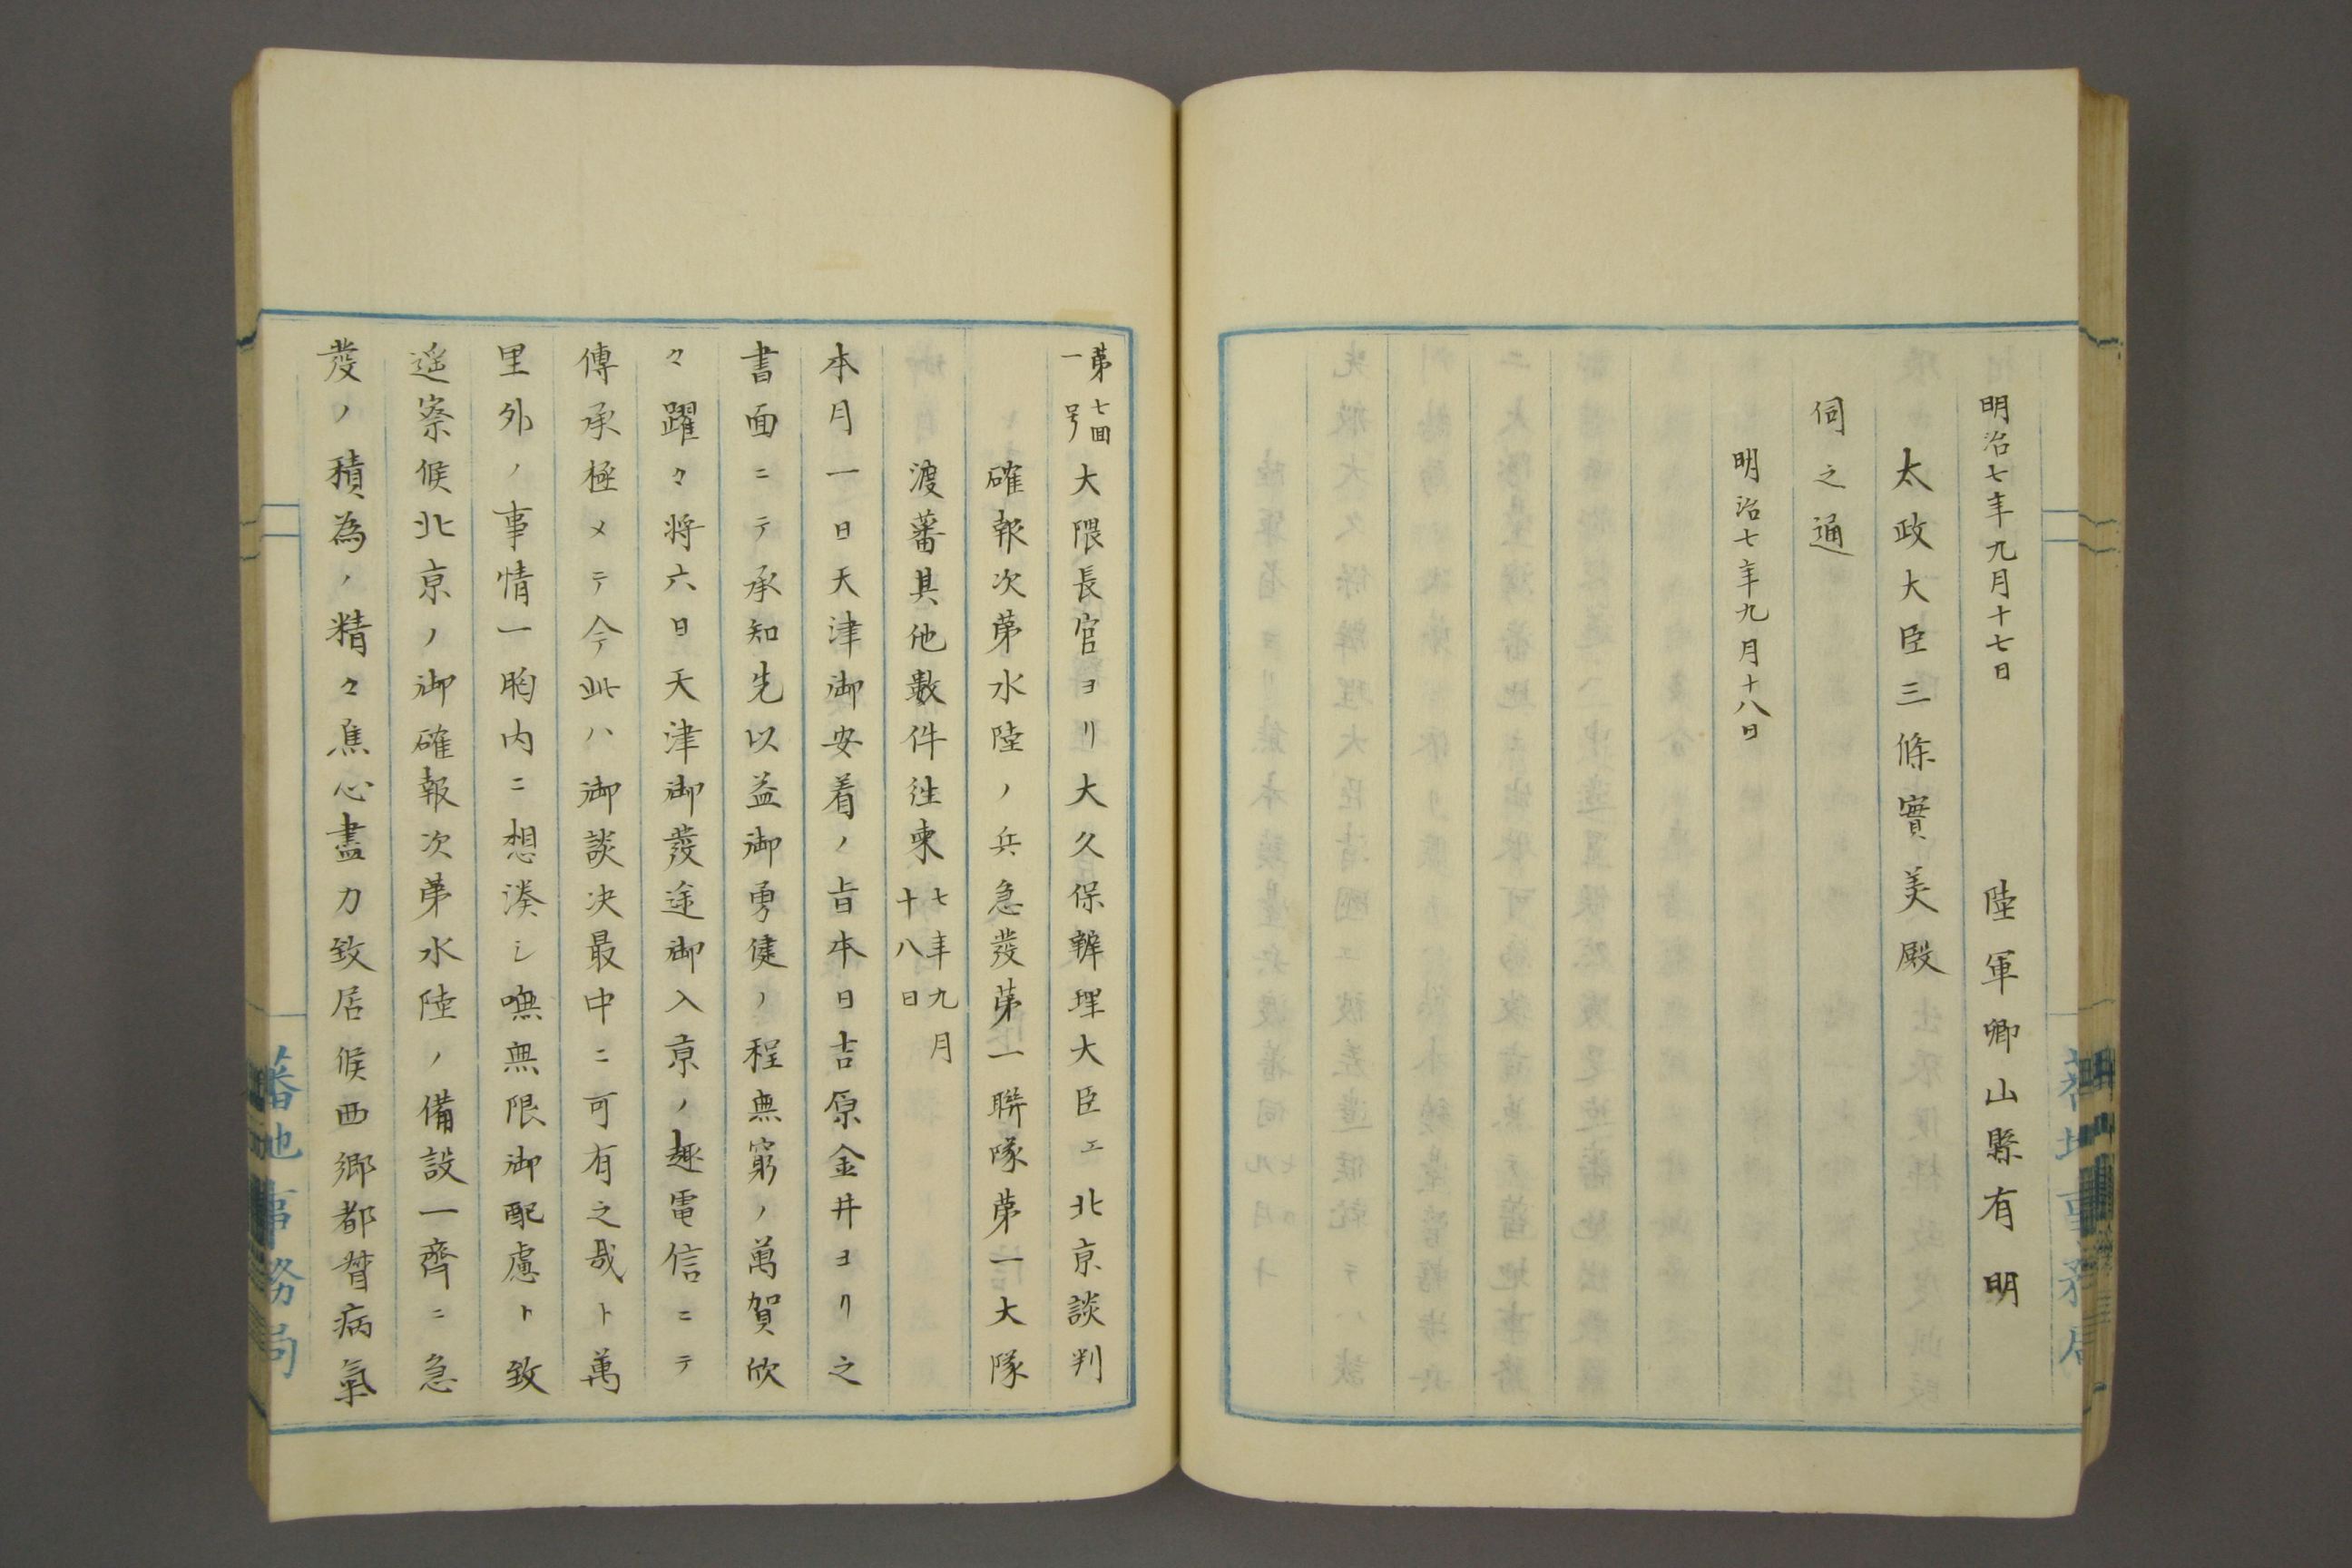 明治七年九月十七日　陸軍卿山縣有明
太政大臣三條實美殿
伺之通
明治七年九月十八日
第七回
一号
大隈長官ヨリ大久保辨理大臣ヱ北京談判
確報次第水陸ノ兵急発第一聯隊第一大隊
渡蕃其他數件往柬七年九月
十八日
本月一日天津御安着ノ旨本日吉原金井ヨリ之
書面ニテ承知先以益御勇健ノ程無窮ノ萬賀欣
々躍々将六日天津御發途御入京ノ趣電信ニテ
傳承極メテ今此ハ御談决最中ニ可有之哉ト萬
里外ノ事情一胸内ニ想湊シ嘸無限御配慮ト致
遥察候北京ノ御確報次第水陸ノ備設一齊ニ急
發ノ積為ノ精々焦心盡力致居候西郷都督病氣
蕃地事務局
蕃地事務局